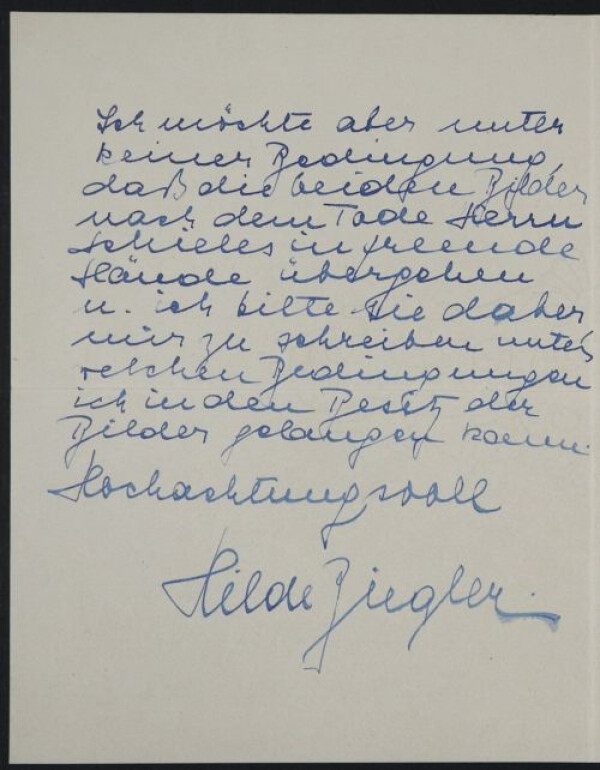 Ich möchte aber unter
keiner Bedingung,
daß die beiden Bilder
nach dem Tode Herrn
Schieles in fremde
Hände übergehen
u. ich bitte Sie daher
mir zu schreiben unter
welchen Bedingungen
ich in den Besitz der
Bilder gelangen kann.
Hochachtungsvoll
Hilde Ziegler.